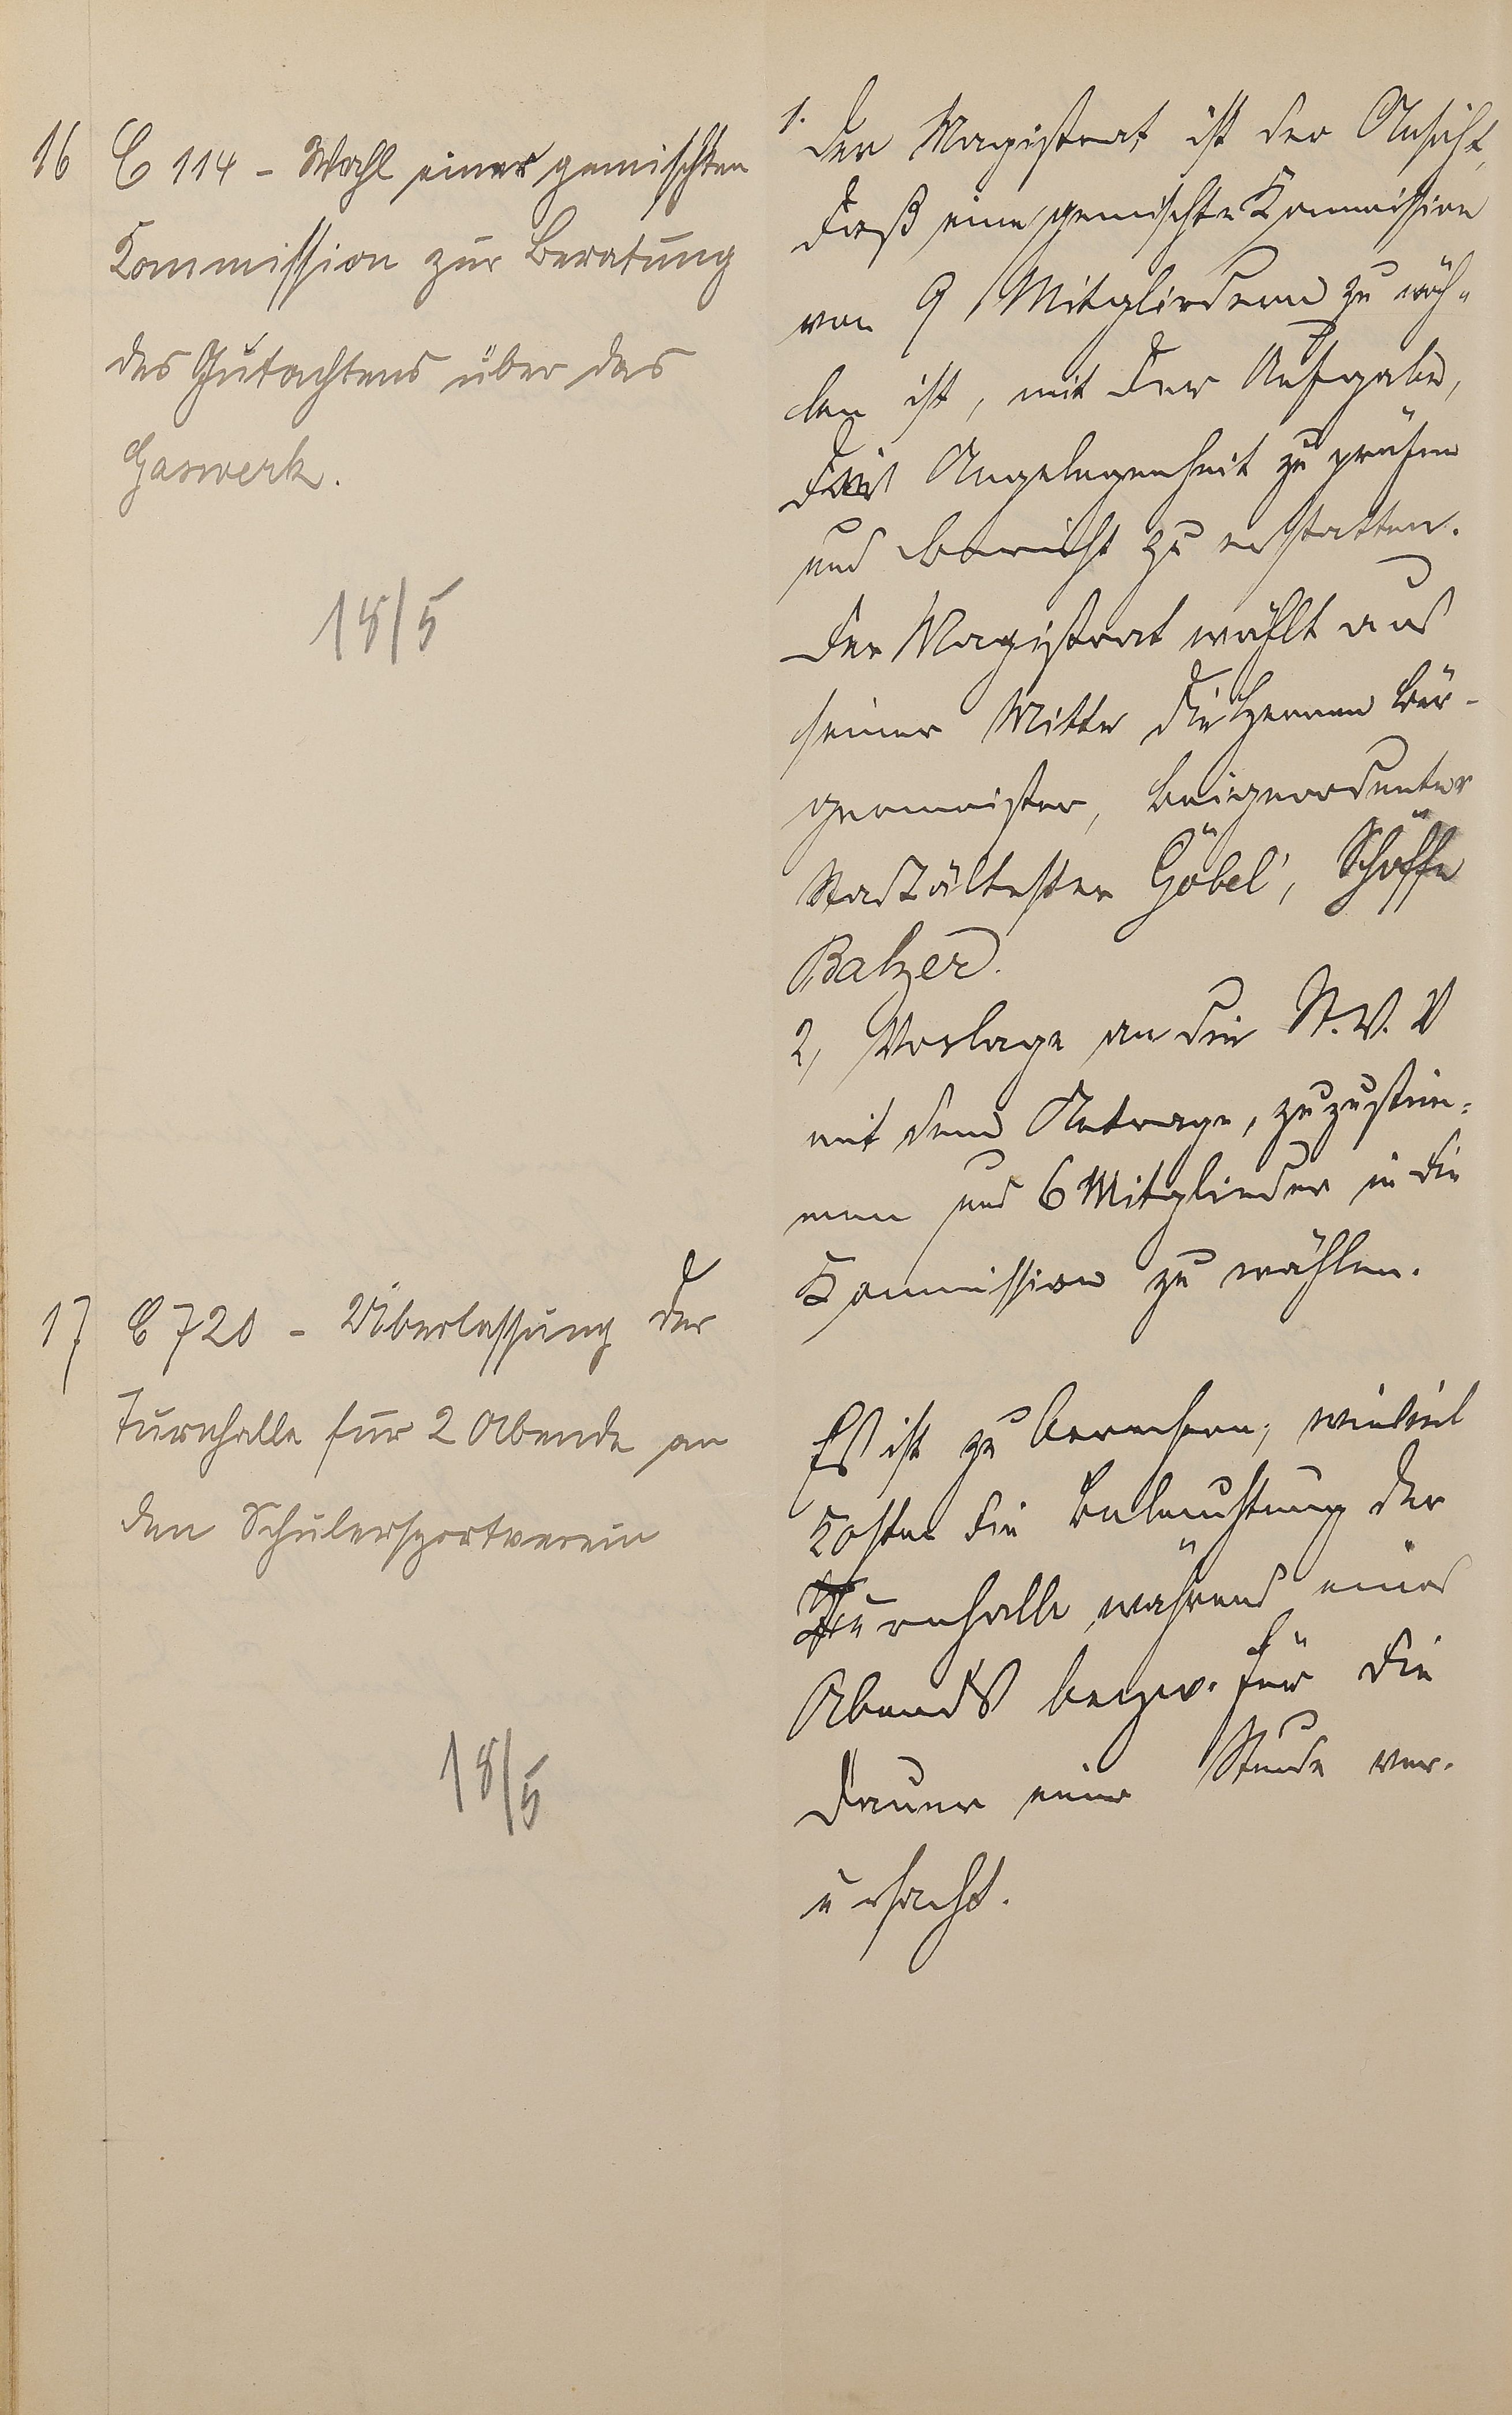 16 C 114 - Wahl einer gemischten
Kommission zur Beratung
des Gutachtens über das
Gaswerk.
18/5
1. Der Magistrat ist der Ansicht,
daß eine gemischte Kommission
von 9 Mitgliedern zu wäh-
len ist, mit der Aufgabe,
die Angelegenheit zu prüfen
und Bericht zu erstatten.
Der Magistrat wählt aus
seiner Mitte die Herren Bür-
germeister, Beigeordneter
Stadtältester Göbel, Schöffe
Balzer.
2, Vorlage an die St. V. V
mit dem Antrage, zuzustim-
men und 6 Mitglieder in die
Kommission zu wählen.
17 C 720 - Überlassung der
Turnhalle für 2 Abende an
den Schülersportverein
18/5
Es ist zu berechnen, wieviel
Kosten die Beleuchtung der
Turnhalle während eines
Abends bezw. für die
Dauer einer Stunde ver-
ursacht.